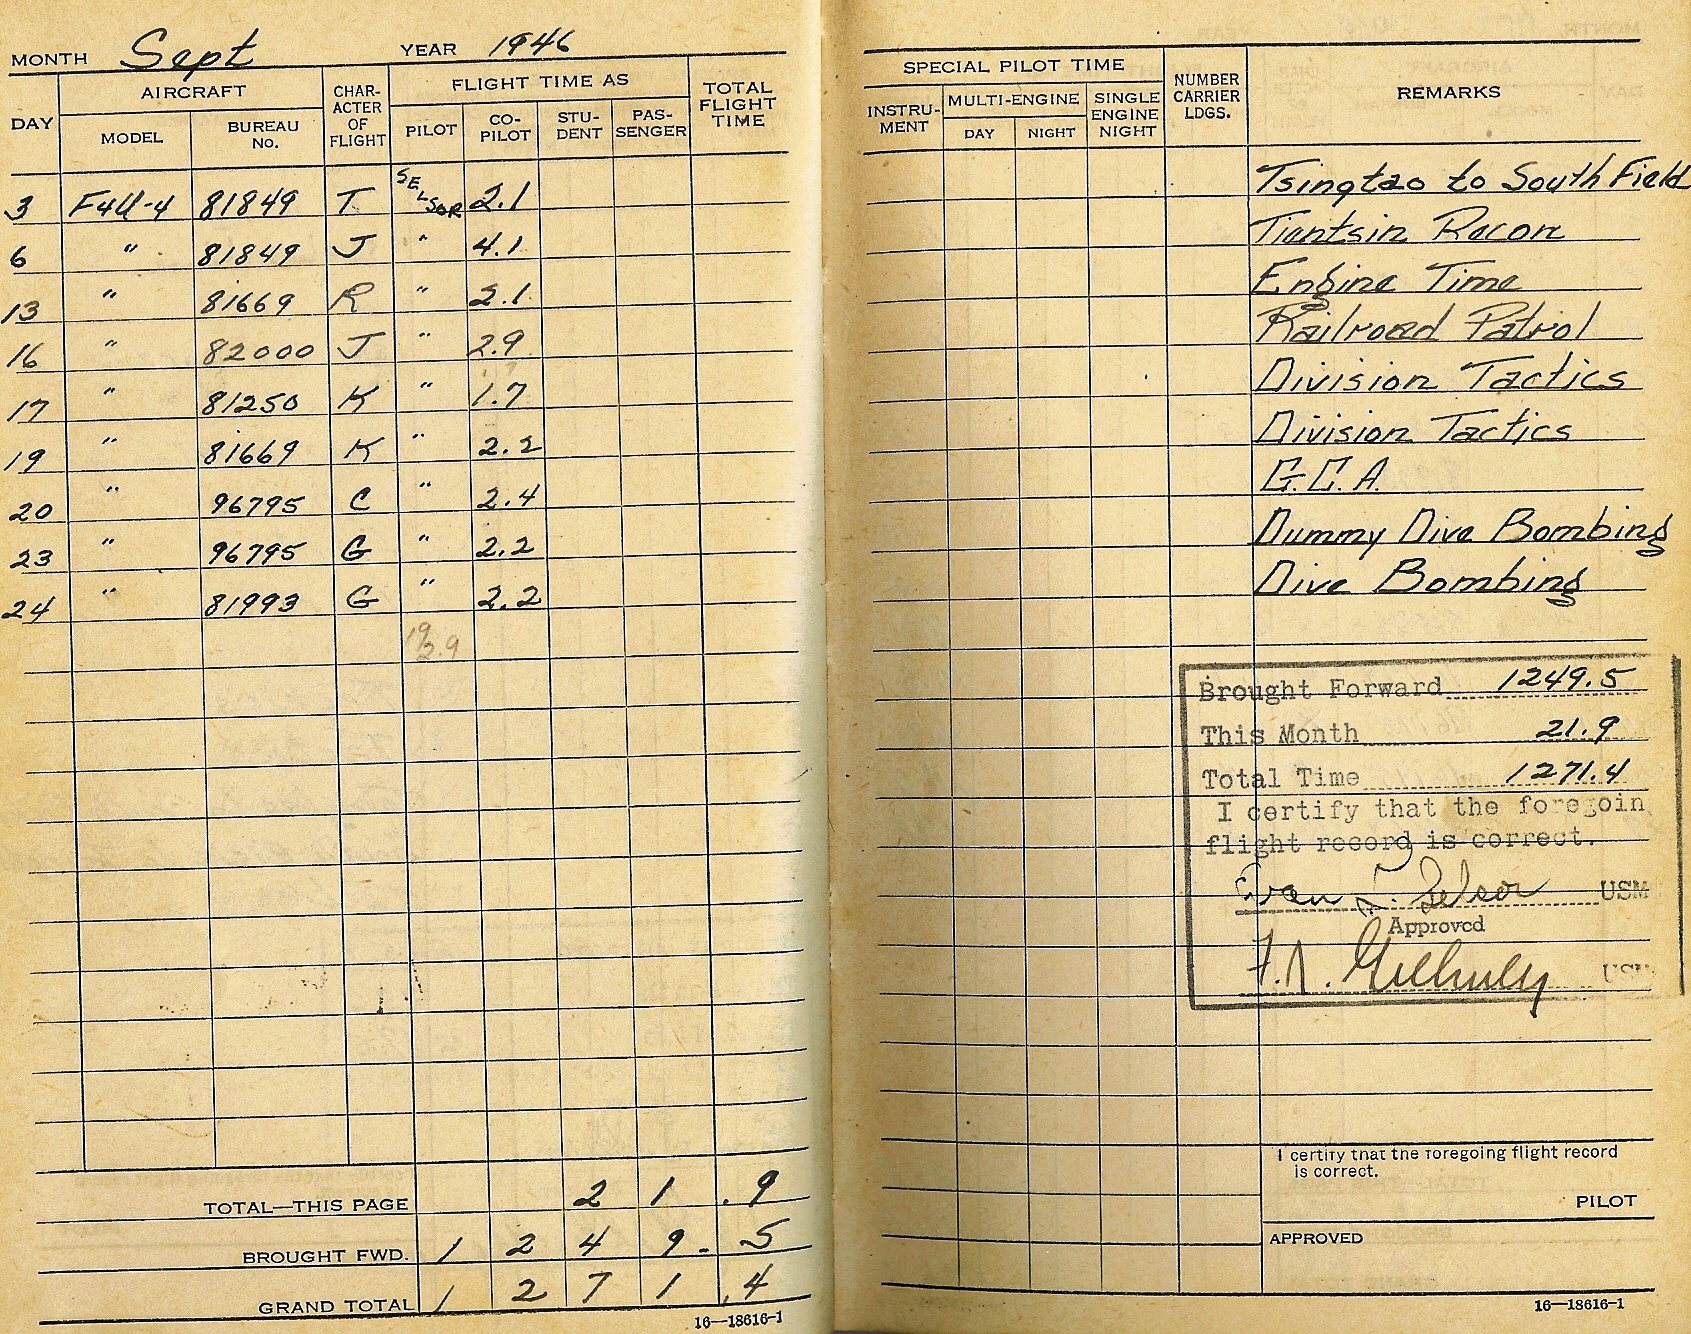 MONTH Sept YEAR 1946
DAY AIRCRAFT CHAR-ACTER OF FLIGHT FLIGHT TIME AS TOTAL FLIGHT TIME
MODEL BUREAU No. PILOT CO-PILOT STU-DENT PAS-SENGER
3 F4U-4 81849 T SELSOR 2.1
6 " 81849 J " 4.1
13 " 81669 R " 2.1
16 " 82000 J " 2.9
17 " 81250 K " 1.7
19 " 81669 K " 2.2
20 " 96795 C " 2.4
23 " 96795 G " 2.2
24 " 81993 G " 2.2
TOTAL—THIS PAGE 21.9
BROUGHT FWD. 1249.5
GRAND TOTAL 1271.4
16—18616-1
SPECIAL PILOT TIME NUMBER CARRIER LDGS. REMARKS
INSTRU-MENT MULTI-ENGINE SINGLE ENGINE NIGHT
DAY NIGHT
Tsingtao to South Field
Tientsin Recon
Engine Time
Railroad Patrol
Division Tactics
Division Tactics
G.C.A.
Dummy Dive Bombing
Dive Bombing
Brought Forward 1249.5
This Month 21.9
Total Time 1271.4
I certify that the foregoin
flight record is correct.
Evan L. Selsor USM
Approved
I certify that the foregoing flight record
is correct.
PILOT
APPROVED
16—18616-1